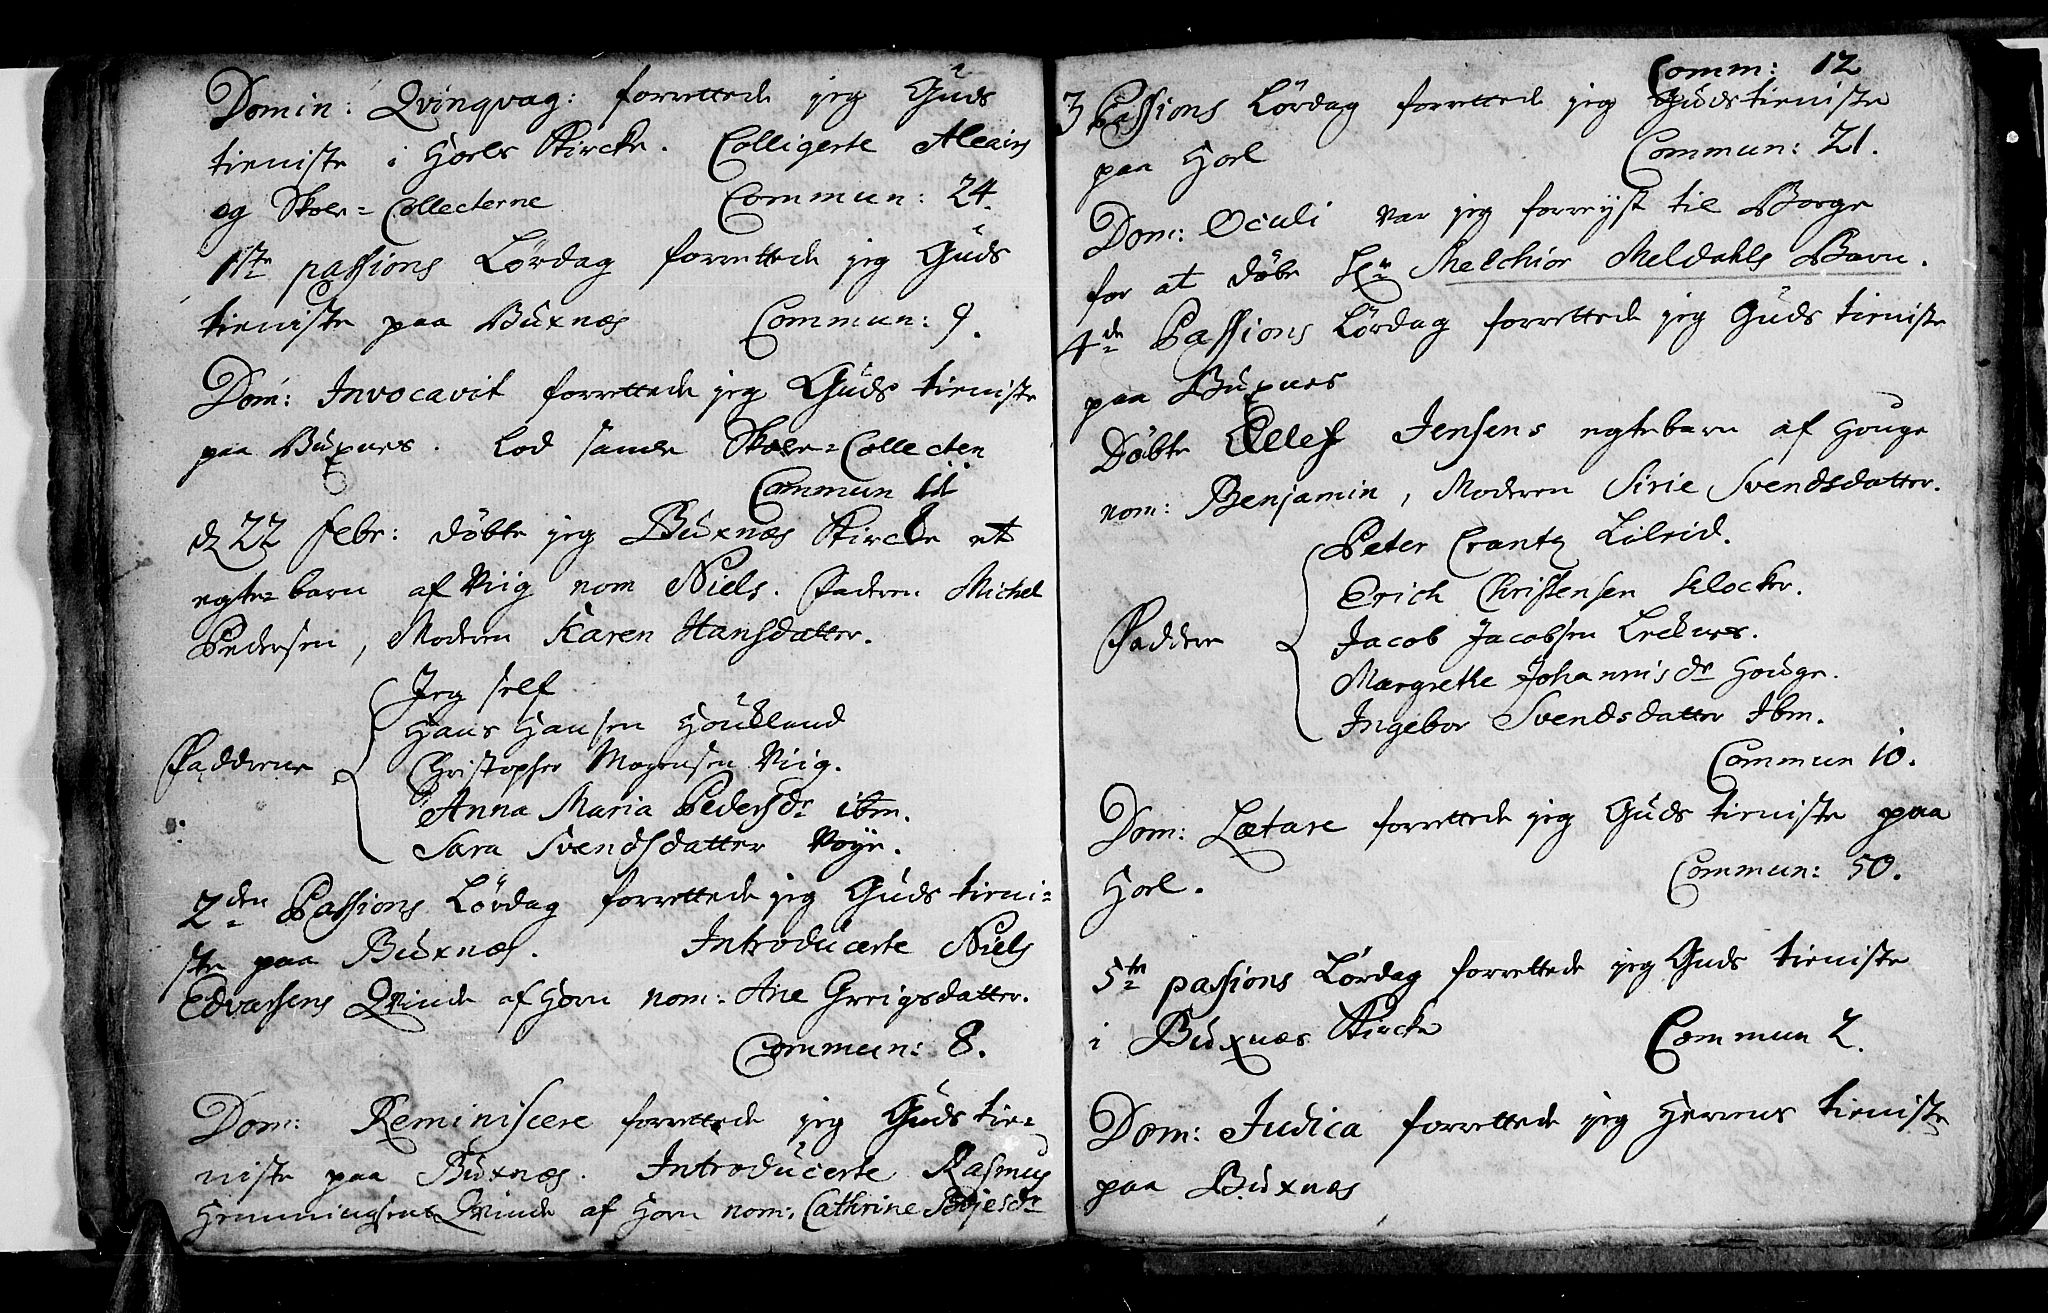 Domin: Qvinqvag: forrettede jeg Guds
tieniste i Horls Kircke. Colligerte
og Skole=Collecterne Commun: 24.
1ste passions Lördag forrettede jeg Guds
tieniste paa Buxnæs Commun: 9.
Dom: Invocavit forrettede jeg Guds tieniste
paa Buxnes. Lod samle Skole=Collecten
Commun 11
d 22 Febr: döbte jeg Buxnæs Kircke et
egte=barn af Viig nom Niels. Faderen Michel
Pedersen, Moderen Karen Hansdatter.
Jeg self
Hans Hansen Houkland
Fadderne Christopher Mogensen Viig.
Anna Maria Pedersdr ibm.
Sara Svendsdatter Voye.
2den Passions Lördag forrettede jeg Guds tieni=
ste paa Buxnæs. Introducerte Niels
Edvarsens Qvinde af Horn nom: Ane Greigsdatter.
Commun: 8.
Dom: Reminiscere forrettede jeg Guds tie=
niste paa Buxnæs. Introducerte Rasmus
Hemmingsens Qvinde af Horn nom: Cathrine Bojesdr
Comm: 12
3 Passions Lördag forrettede jeg Gudstieniste
paa Horl Commun: 21.
Dom: Oculi var jeg forreyst til Borge
for at döbe Hr Melchior Meldahls Barn.
4de Passions Lördag forrettede jeg Guds tieniste
paa Buxnes
Döbte Ellef Jensens egtebarn af Houge
nom: Benjamin, Moderen Sirie Svendsdatter.
Peter Crantz Lileid.
Erich Christensen Klocker.
Faddere Jacob Jacobsen Leknes.
Margrethe Johannisdr Houge.
Ingebor Svendsdatter Ibm.
Commun 10.
Dom: Lætare forrettede jeg Guds tieniste paa
Horl. Commun: 50.
5te passions Lördag forrettede jeg Guds tieniste
i Buxnæs Kircke Commun 2.
Dom: Judica forrettede jeg Herrens tieniste
paa Buxnæs